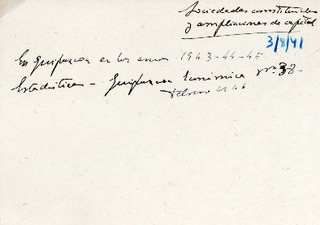 Sociedades constituidas
y ampliaciones de capital
3/8/41
En Guipuzcoa en los años 1943-44-45
Estadística - Guipuzcoa Económica nº 38.
febrero 1946